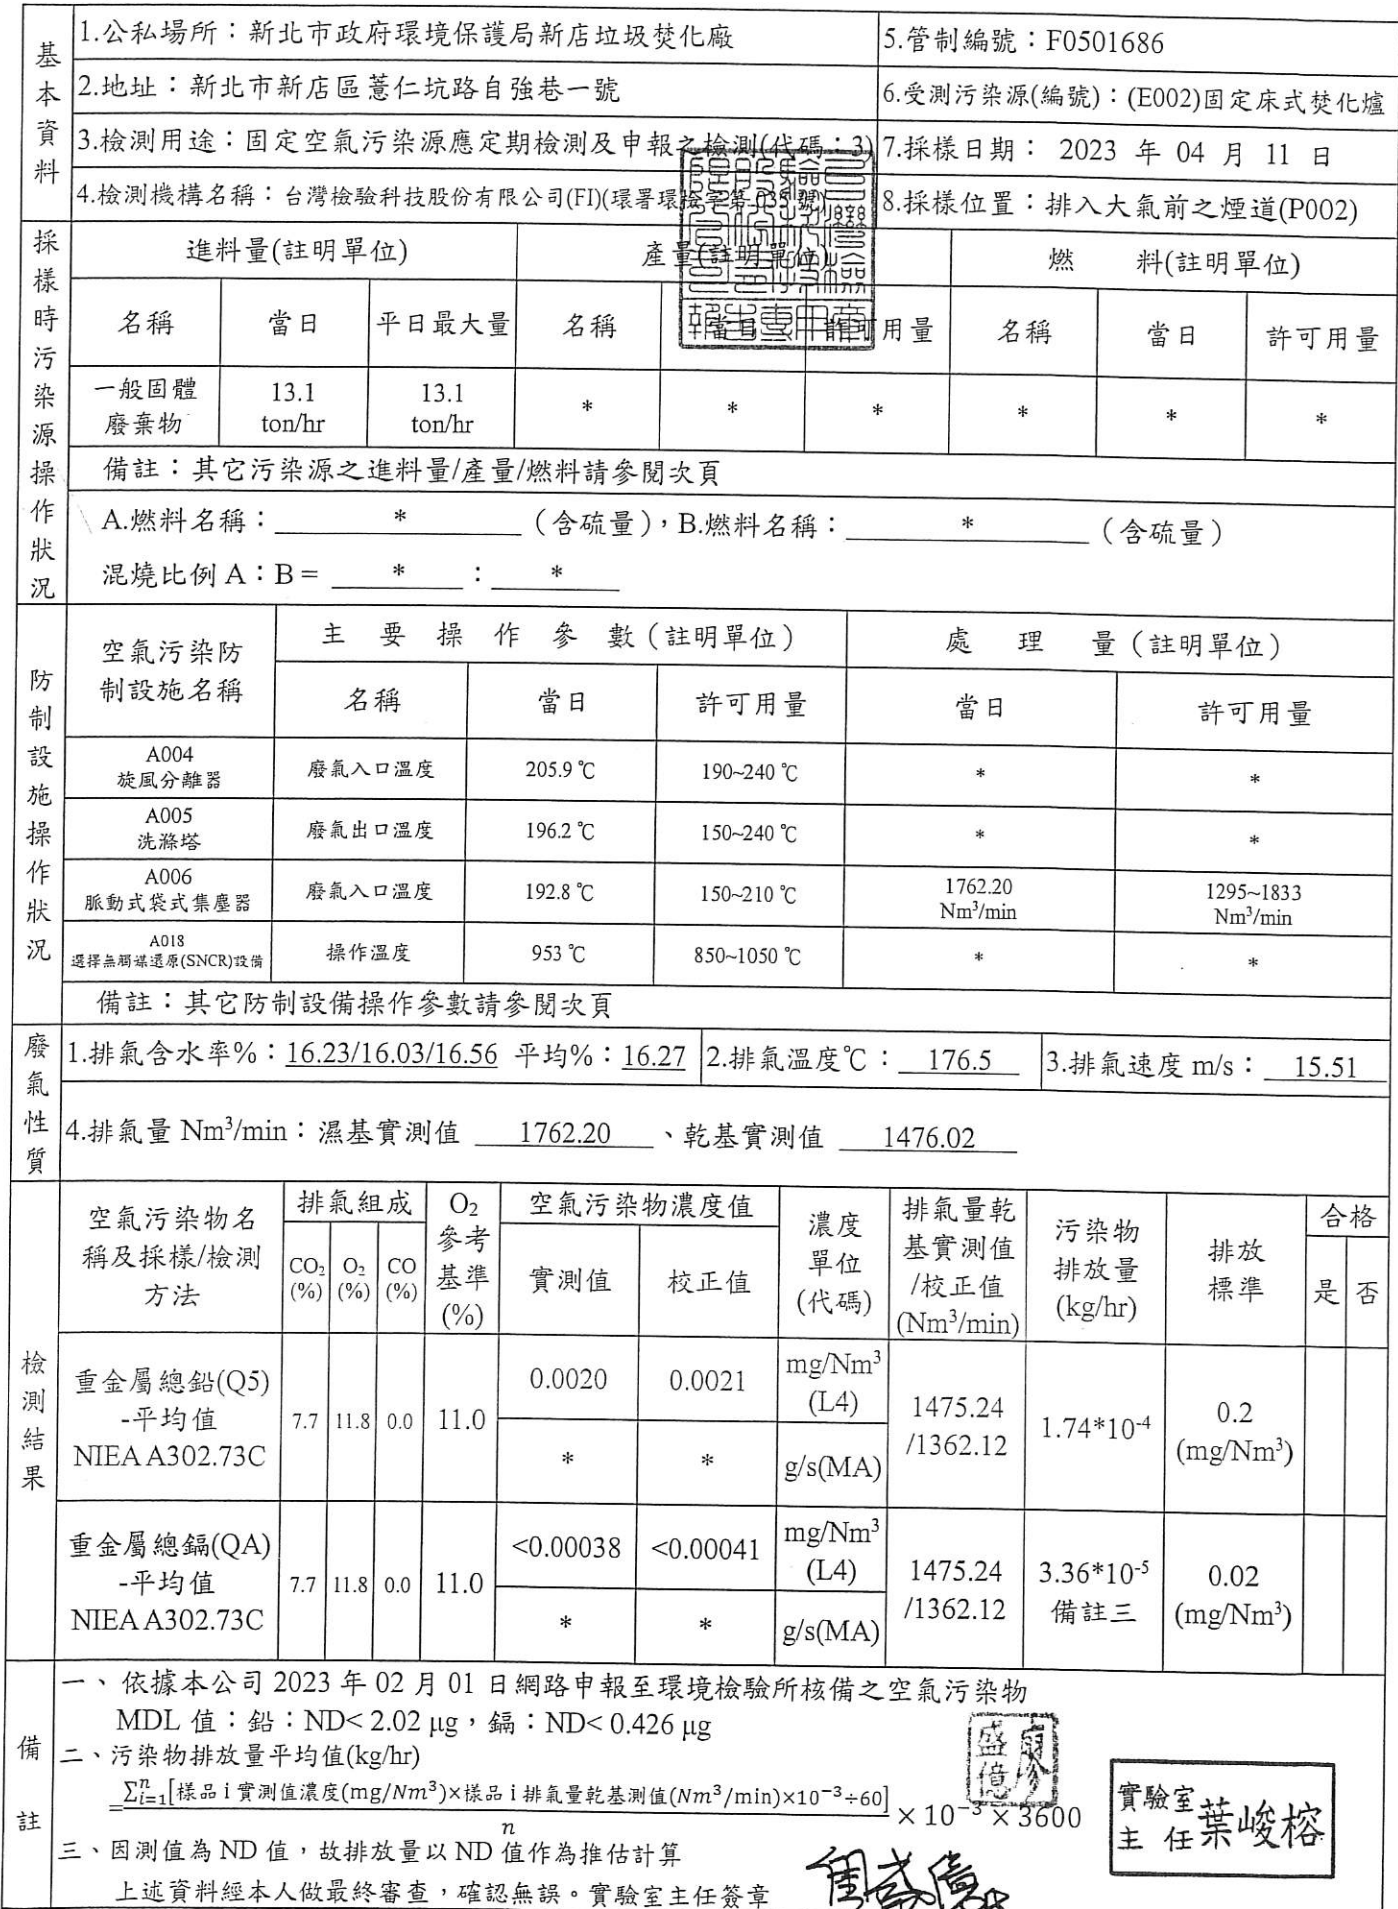 基本資料
1.公私場所：新北市政府環境保護局新店垃圾焚化廠
5.管制編號：F0501686
2.地址：新北市新店區薏仁坑路自強巷一號
6.受測污染源(編號)：(E002)固定床式焚化爐
3.檢測用途：固定空氣污染源應定期檢測及申報之檢測(代碼：3)
7.採樣日期： 2023 年 04 月 11 日
4.檢測機構名稱：台灣檢驗科技股份有限公司(FI)(環署環檢字第 035 號)
8.採樣位置：排入大氣前之煙道(P002)
採樣時污染源操作狀況
進料量(註明單位) 產量(註明單位) 燃 料(註明單位)
名稱 當日 平日最大量 名稱 當日 許可用量 名稱 當日 許可用量
一般固體廢棄物 13.1 ton/hr 13.1 ton/hr * * * * * *
備註：其它污染源之進料量/產量/燃料請參閱次頁
A.燃料名稱： * （含硫量），B.燃料名稱： * （含硫量）
混燒比例 A：B = * ： *
防制設施操作狀況
空氣污染防制設施名稱 主 要 操 作 參 數（註明單位） 處 理 量（註明單位）
名稱 當日 許可用量 當日 許可用量
A004 旋風分離器 廢氣入口溫度 205.9 ℃ 190~240 ℃ * *
A005 洗滌塔 廢氣出口溫度 196.2 ℃ 150~240 ℃ * *
A006 脈動式袋式集塵器 廢氣入口溫度 192.8 ℃ 150~210 ℃ 1762.20 Nm³/min 1295~1833 Nm³/min
A018 選擇無觸媒還原(SNCR)設備 操作溫度 953 ℃ 850~1050 ℃ * *
備註：其它防制設備操作參數請參閱次頁
廢氣性質
1.排氣含水率%：16.23/16.03/16.56 平均%：16.27 2.排氣溫度℃： 176.5 3.排氣速度 m/s： 15.51
4.排氣量 Nm³/min：濕基實測值 1762.20 、乾基實測值 1476.02
檢測結果
空氣污染物名稱及採樣/檢測方法 排氣組成 CO₂(%) O₂(%) CO(%) O₂參考基準(%) 空氣污染物濃度值 實測值 校正值 濃度單位(代碼) 排氣量乾基實測值/校正值(Nm³/min) 污染物排放量(kg/hr) 排放標準 合格 是 否
重金屬總鉛(Q5)-平均值 NIEA A302.73C 7.7 11.8 0.0 11.0 0.0020 0.0021 mg/Nm³(L4) 1475.24/1362.12 1.74*10⁻⁴ 0.2(mg/Nm³)
* * g/s(MA)
重金屬總鎘(QA)-平均值 NIEA A302.73C 7.7 11.8 0.0 11.0 <0.00038 <0.00041 mg/Nm³(L4) 1475.24/1362.12 3.36*10⁻⁵ 備註三 0.02(mg/Nm³)
* * g/s(MA)
備註
一、依據本公司 2023 年 02 月 01 日網路申報至環境檢驗所核備之空氣污染物
MDL 值：鉛：ND< 2.02 μg，鎘：ND< 0.426 μg
二、污染物排放量平均值(kg/hr)
=∑ⁿᵢ₌₁[樣品 i 實測值濃度(mg/Nm³)×樣品 i 排氣量乾基測值(Nm³/min)×10⁻³÷60] / n × 10⁻³ × 3600
三、因測值為 ND 值，故排放量以 ND 值作為推估計算
上述資料經本人做最終審查，確認無誤。實驗室主任簽章
實驗室主任葉峻榕